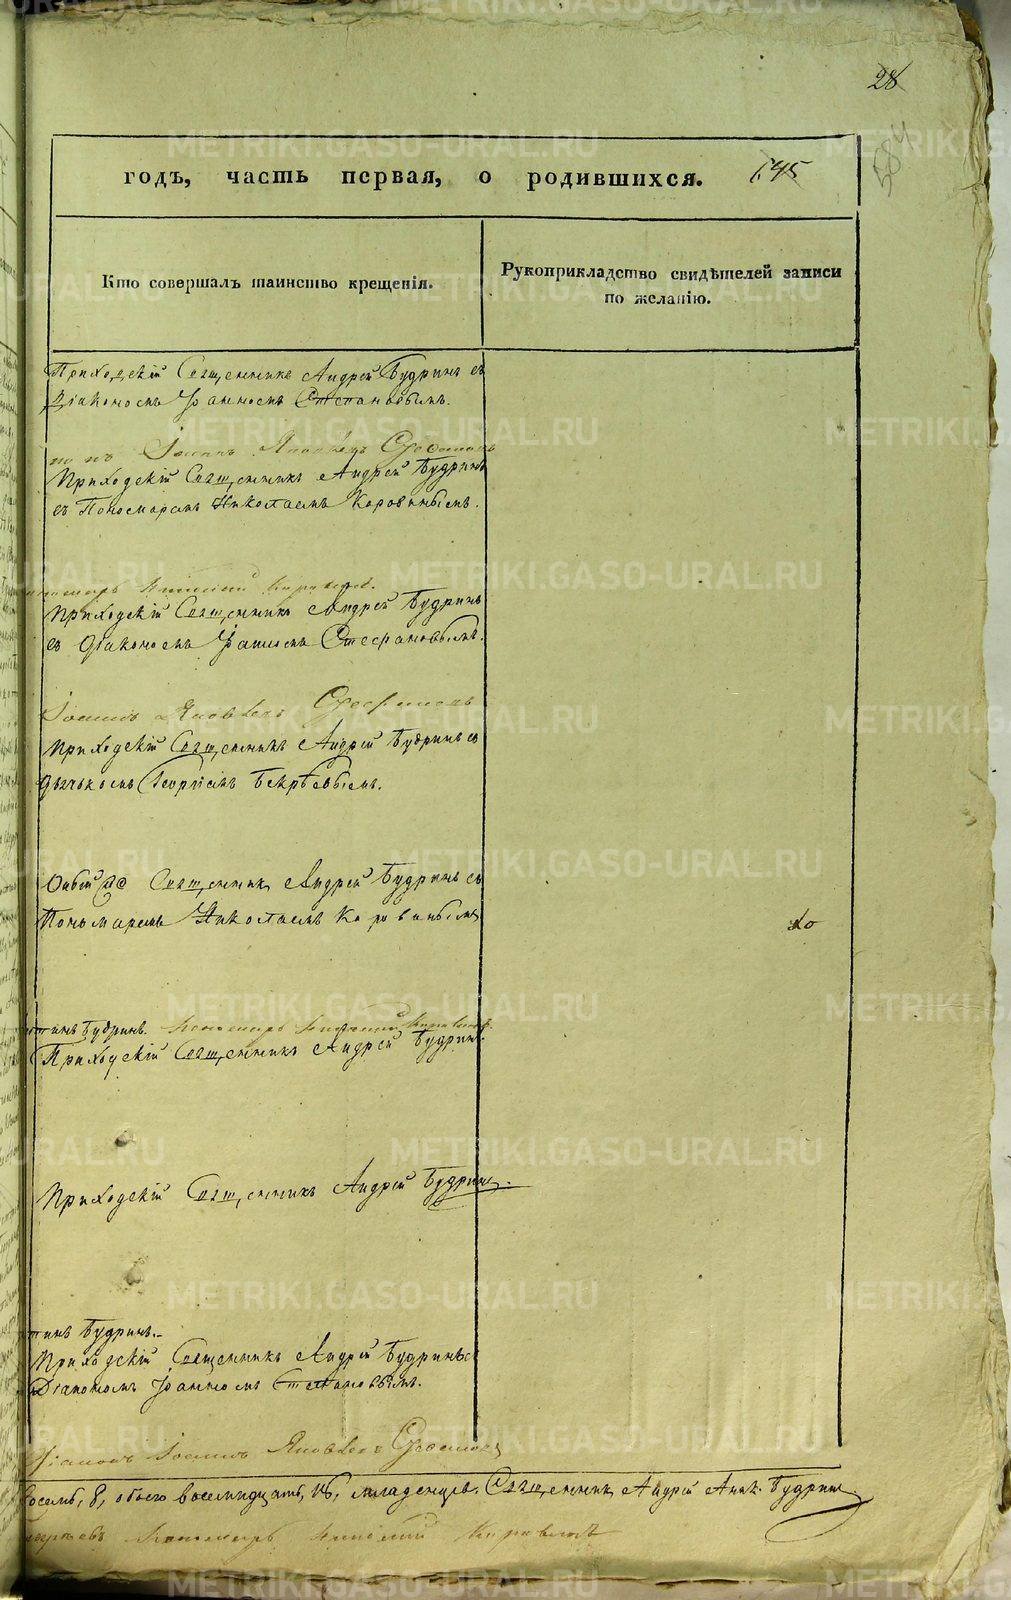 28
584
годъ, часть первая, о родившихся. 145
Кто совершалъ таинство крещенія.
Рукоприкладство свидѣтелей записи
по желанію.
Приходскій Священникъ Андрей Будринъ съ
Діакономъ Іоанномъ Стефановымъ.
Іоаннъ Яковлевъ
Приходскій Священникъ Андрей Будринъ
съ Пономаремъ Николаемъ Коровинымъ.
Приходскій Священникъ Андрей Будринъ
съ Діакономъ Іоанномъ Стефановымъ.
Іоаннъ Яковлевъ
Приходскій Священникъ Андрей Будринъ съ
Дьячкомъ Георгіемъ
Священникъ Андрей Будринъ съ
Пономаремъ Николаемъ Коровинымъ
Будринъ. Пономарь
Приходскій Священникъ Андрей Будринъ.
Приходскій Священникъ Андрей Будринъ.
Будринъ.
Приходскій Священникъ Андрей Будринъ съ
Діакономъ Іоанномъ Стефановымъ.
Діаконъ Іоаннъ Яковлевъ
восемь, 8, обоего восемнадцать, младенцевъ. Священникъ Андрей Будринъ.
Пономарь Николай Коровинъ
METRIKI.GASO-URAL.RU